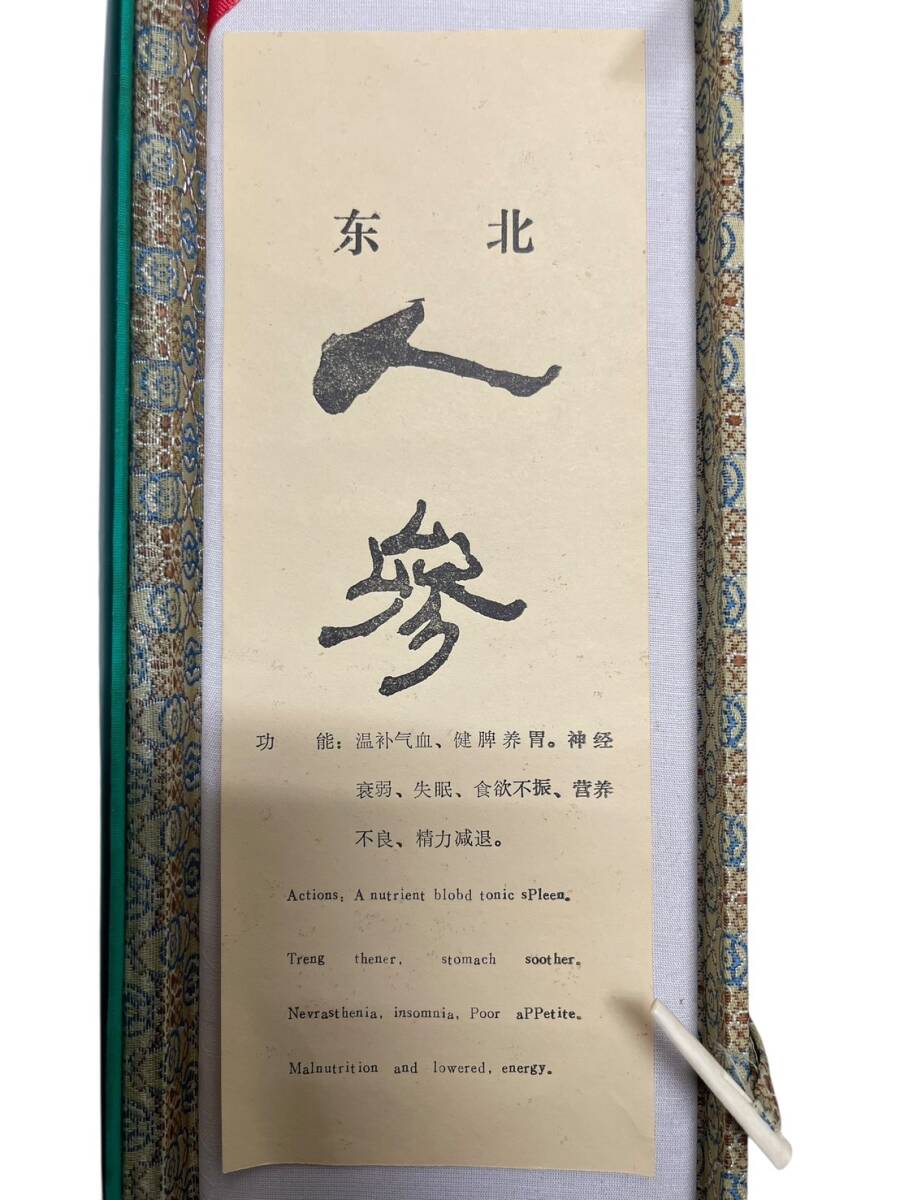 东北
人
參
功能：温补气血、健脾养胃。神经
衰弱、失眠、食欲不振、营养
不良、精力减退。
Actions: A nutrient blobd tonic sPleen.
Treng thener, stomach soother.
Nevrasthenia, insomnia, Poor aPPetite.
Malnutrition and lowered, energy.